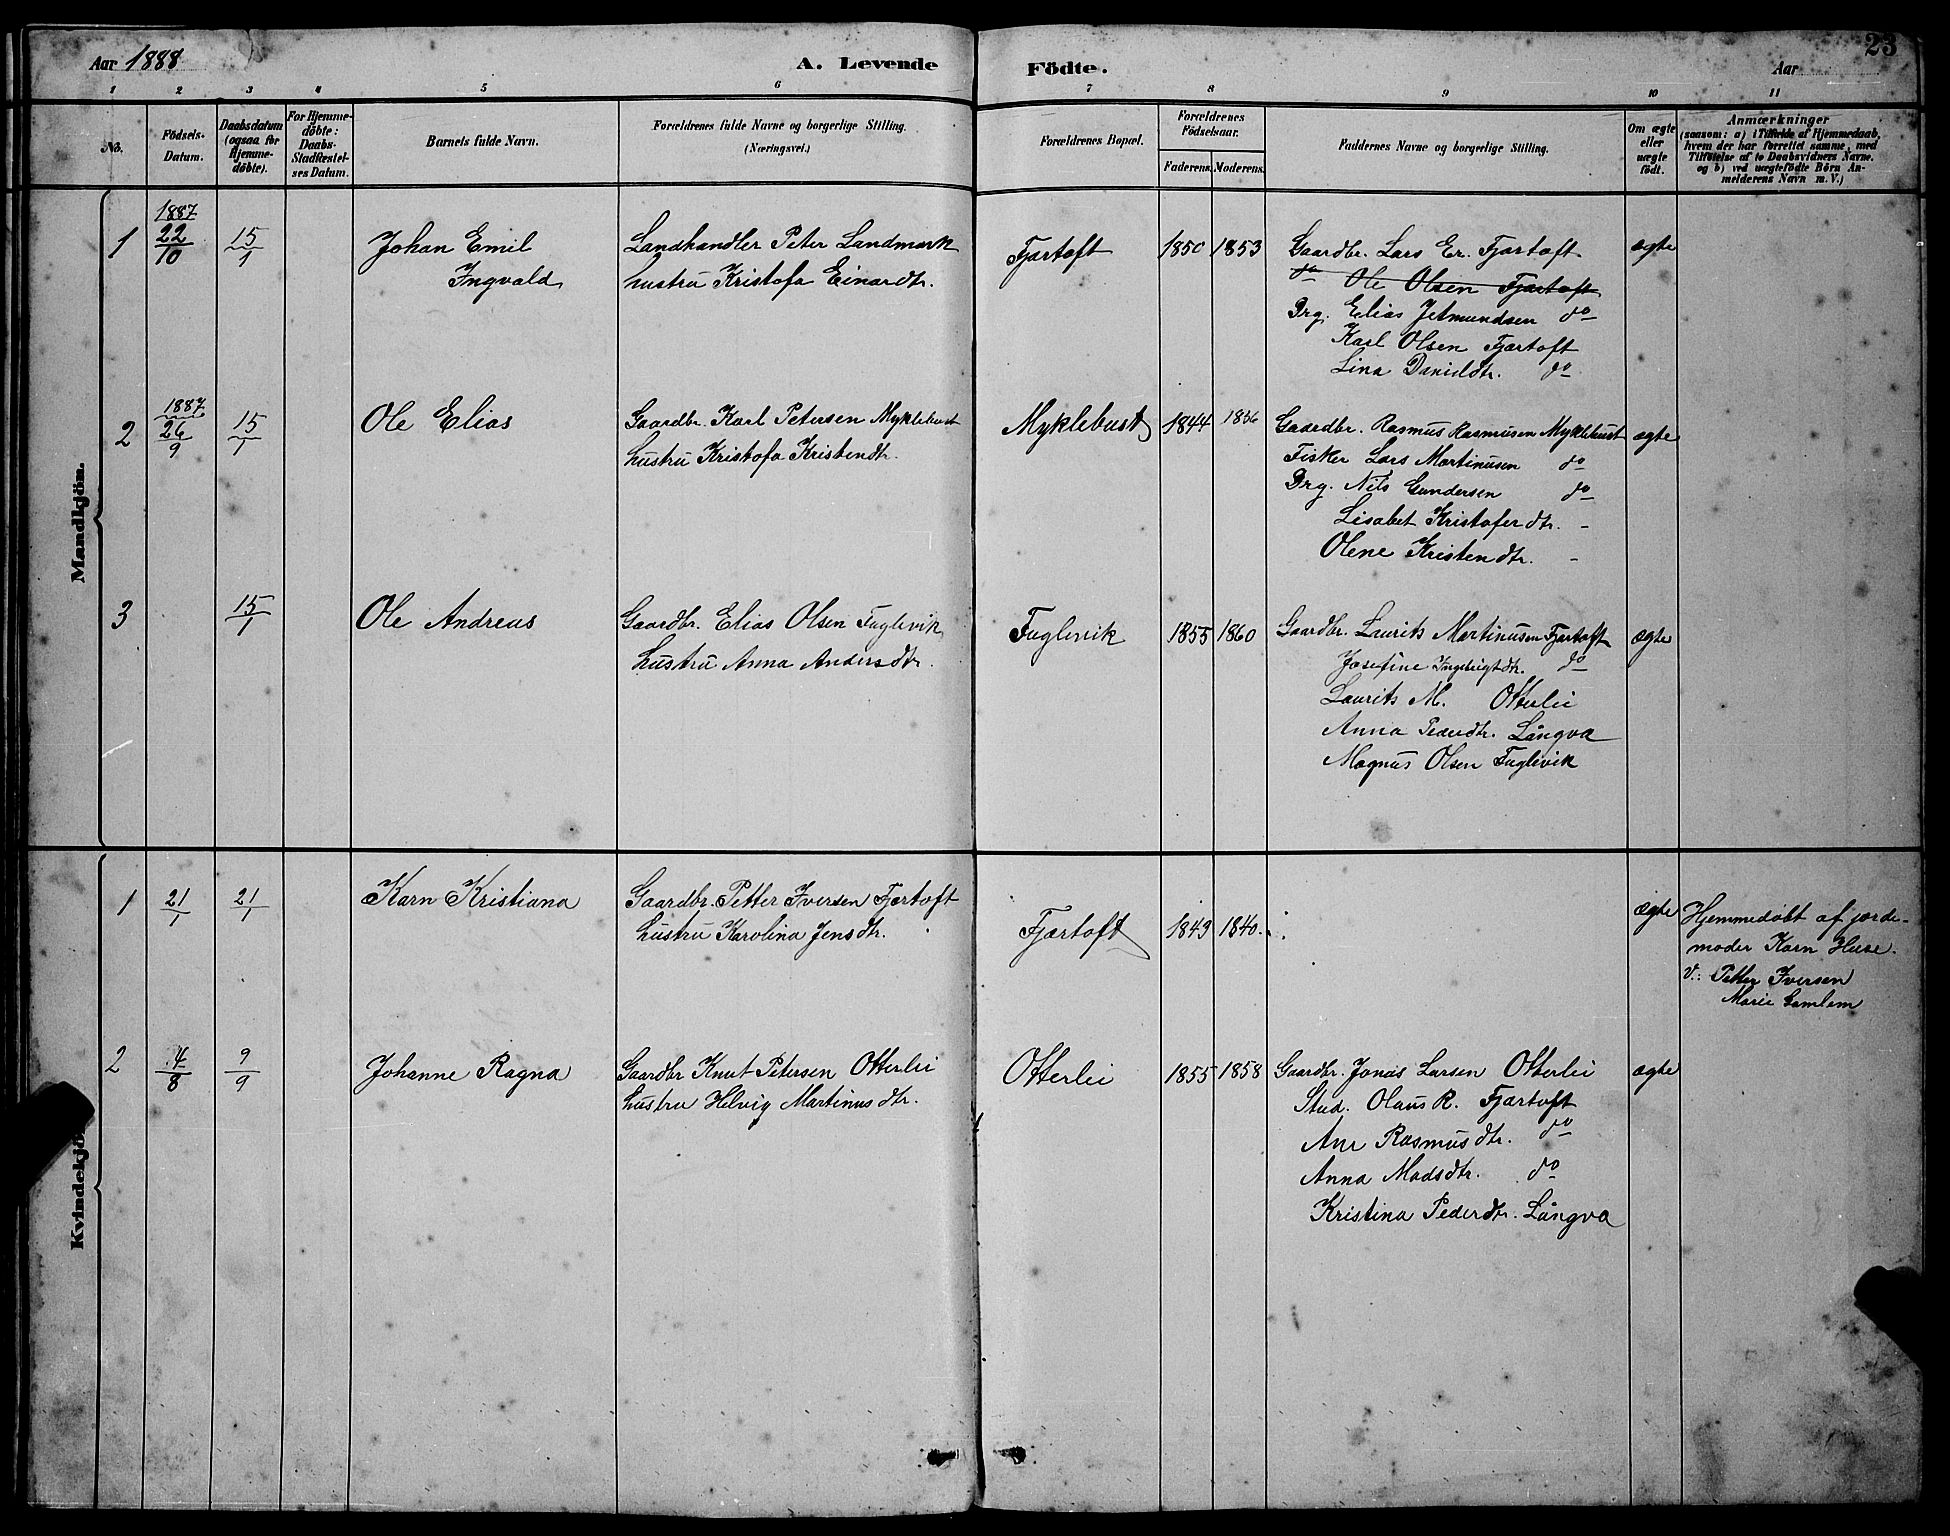 23
Aar 1888
A. Levende Födte.
Aar
1 2 3 4 5 6 7 8 9 10 11
No.
Födsels-
Datum.
Daabsdatum
(ogsaa for
Hjemme-
döbte).
For Hjemme-
döbte:
Daabs-
Stadfæstel-
ses Datum.
Barnets fulde Navn.
Forældrenes fulde Navne og borgerlige Stilling.
(Næringsvei.)
Forældrenes Bopæl.
Forældrenes
Födselsaar.
Faderens. Moderens.
Faddernes Navne og borgerlige Stilling.
Om ægte
eller
uægte
födt.
Anmærkninger
(saasom: a) i Tilfælde af Hjemmedaab,
hvem der har forrettet samme, med
Tilföielse af to Daabsvidners Navne.
og b) ved uægtefödte Börn An-
melderens Navn m. V.)
Mandkjön.
1 1887 22/10 15/1 Johan Emil
Ingvald
Landhandler Peter Landmark
hustru Kristofa Einardtr.
Fjærtoft 1850 1853
Gaardbr. Lars Er. Fjærtoft
do Ole Olsen Fjærtoft
Drg. Elias Jetmundsen do
Karl Olsen Fjærtoft
Lina Danieldtr. do
ægte
2 1887 26/9 15/1 Ole Elias
Gaardbr. Karl Petersen Myklebust
hustru Kristofa Kristendtr.
Myklebust 1844 1856
Gaardbr. Rasmus Rasmusen Myklebust
Fisker Lars Martinusen do
Drg. Nils Gundersen do
Lisabet Kristoferdtr. -
Olene Kristendtr. -
ægte
3 15/1 Ole Andreas
Gaardbr. Elias Olsen Fuglevik
hustru Anna Andersdtr.
Fuglevik 1855 1860
Gaardbr. Laurits Martinusen Fjærtoft
Josefine Ingebrigtdtr. do
Laurits M. Otterlei
Anna Pederdtr. Långva
Magnus Olsen Fuglevik
ægte
Kvindekjö
1 21/1 21/1 Karn Kristiana
Gaardbr. Petter Iversen Fjærtoft
hustru Karolina Jensdtr.
Fjærtoft 1843 1840.
ægte
Hjemmedøbt af jorde-
moder Karn Huse.
V.: Petter Iversen
Marie Gamlem
2 4/8 9/9 Johanne Ragna
Gaardbr Knut Petersen Otterlei
hustru Helvig Martinusdtr.
Otterlei 1855 1858
Gaardbr. Jonas Larsen Otterlei
Stud. Olaus R. Fjærtoft
Ane Rasmusdtr. do
Anna Madsdtr. do
Kristina Pederdtr. Långva
ægte